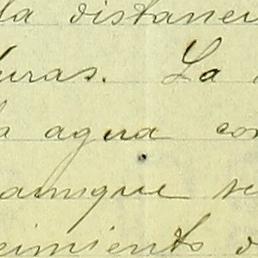 la distanci
uras. La
a agua con
aunque se
cimiento d